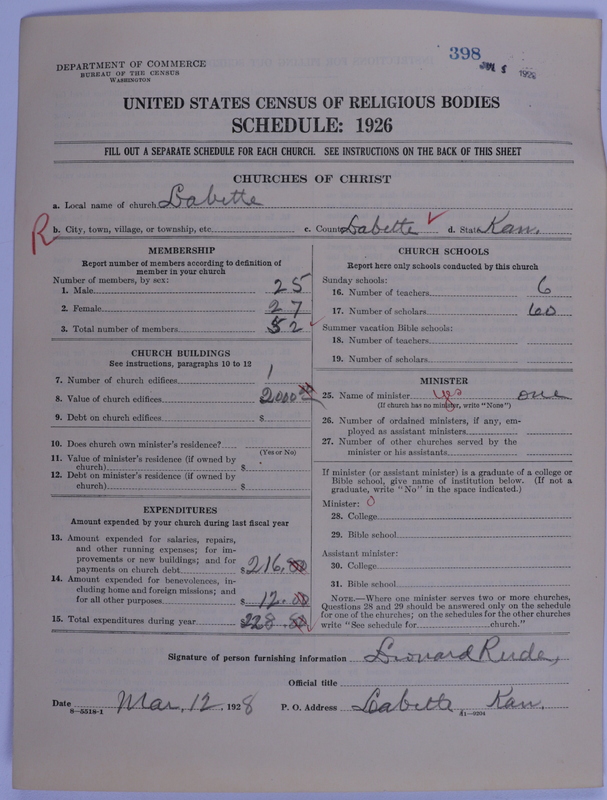 398
JUL 5 1928
DEPARTMENT OF COMMERCE
BUREAU OF THE CENSUS
WASHINGTON
UNITED STATES CENSUS OF RELIGIOUS BODIES
SCHEDULE: 1926
FILL OUT A SEPARATE SCHEDULE FOR EACH CHURCH. SEE INSTRUCTIONS ON THE BACK OF THIS SHEET
CHURCHES OF CHRIST
a. Local name of church Labette
R b. City, town, village, or township, etc. c. County Labette ✓ d. State Kan.
MEMBERSHIP
Report number of members according to definition of
member in your church
Number of members, by sex:
1. Male 25
2. Female 27
3. Total number of members 52 ✓
CHURCH BUILDINGS
See instructions, paragraphs 10 to 12
7. Number of church edifices 1
8. Value of church edifices 2000 00
9. Debt on church edifices $
10. Does church own minister's residence?
(Yes or No)
11. Value of minister's residence (if owned by
church) $
12. Debt on minister's residence (if owned by
church) $
EXPENDITURES
Amount expended by your church during last fiscal year
13. Amount expended for salaries, repairs,
and other running expenses; for im-
provements or new buildings; and for
payments on church debt $ 216.80
14. Amount expended for benevolences, in-
cluding home and foreign missions; and
for all other purposes $ 12.00
15. Total expenditures during year $228.80 ✓
CHURCH SCHOOLS
Report here only schools conducted by this church
Sunday schools:
16. Number of teachers 6
17. Number of scholars 60
Summer vacation Bible schools:
18. Number of teachers
19. Number of scholars
MINISTER
25. Name of minister yes one
(If church has no minister, write "None")
26. Number of ordained ministers, if any, em-
ployed as assistant ministers
27. Number of other churches served by the
minister or his assistants
If minister (or assistant minister) is a graduate of a college or
Bible school, give name of institution below. (If not a
graduate, write "No" in the space indicated.)
Minister: 0
28. College
29. Bible school
Assistant minister:
30. College
31. Bible school
NOTE.—Where one minister serves two or more churches,
Questions 28 and 29 should be answered only on the schedule
for one of the churches; on the schedules for the other churches
write "See schedule for church."
Signature of person furnishing information Leonard Rude,
Official title
Date Mar, 12, 1928 P. O. Address Labette, Kan.
8—5518-1 11—9204